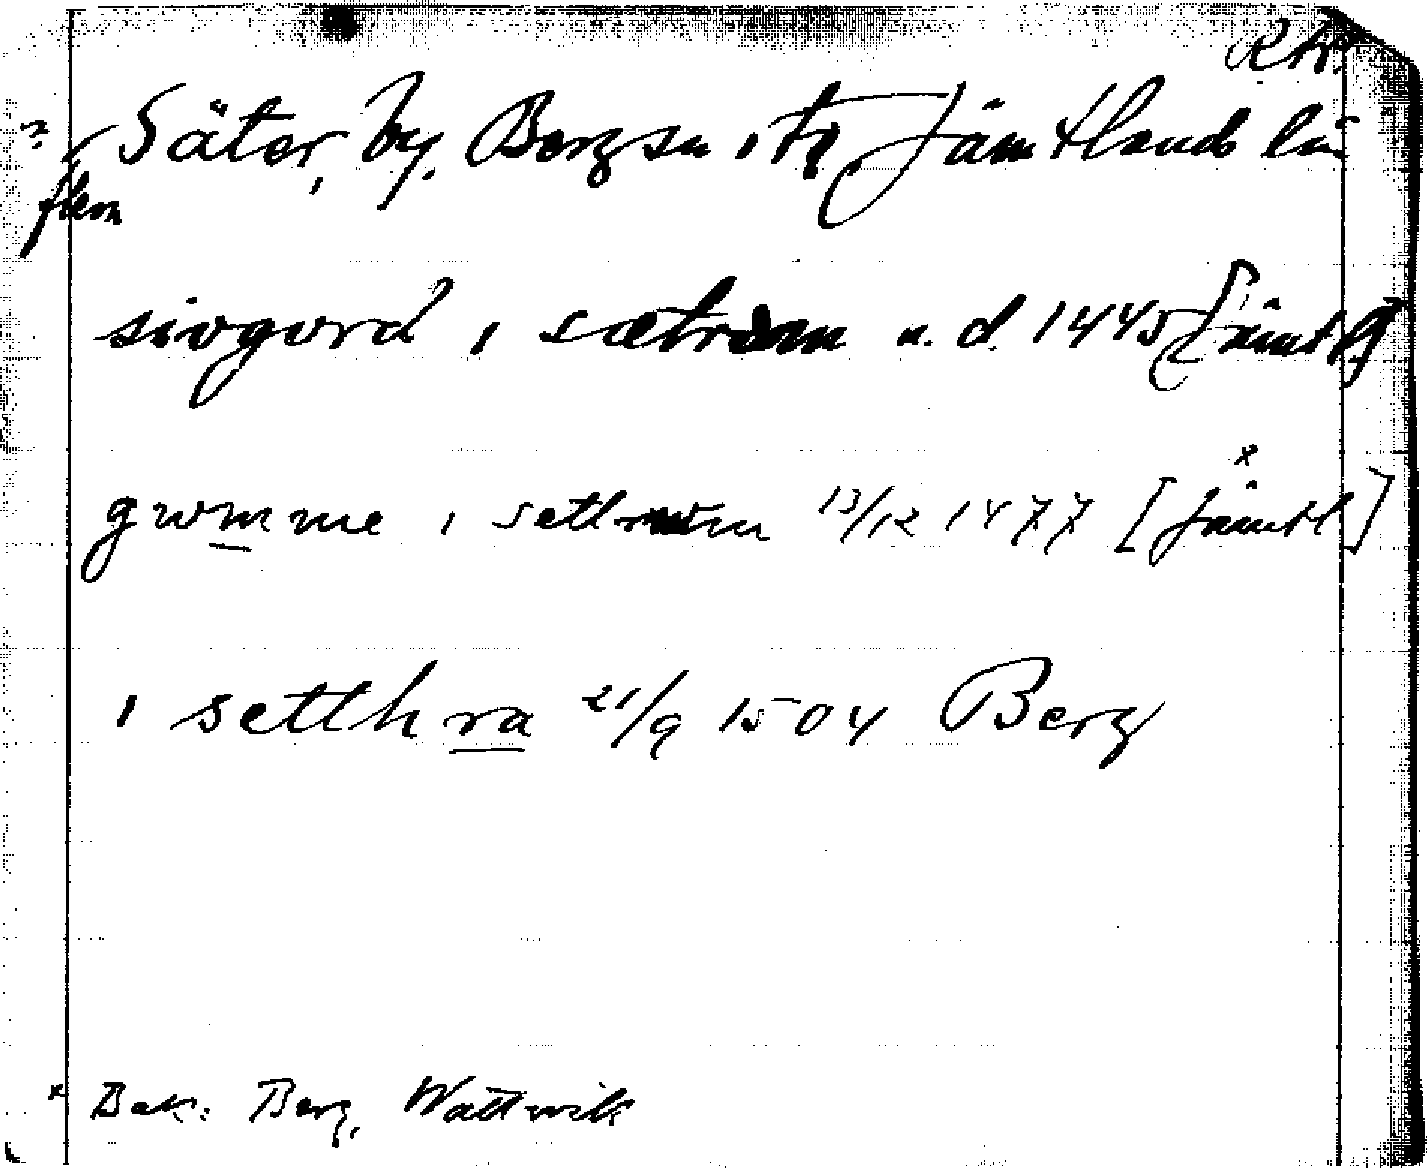 RAp.
? Säter, by. Bergs sn, Jämtlands län
flera
sivgvrd i sætrom u. d. 1445 [Jämtl]
gwmme i settrom 13/12 1477 [Jämtl]
x
i setthra 21/9 1504 Berg
x Bak: Berg, Wattwik